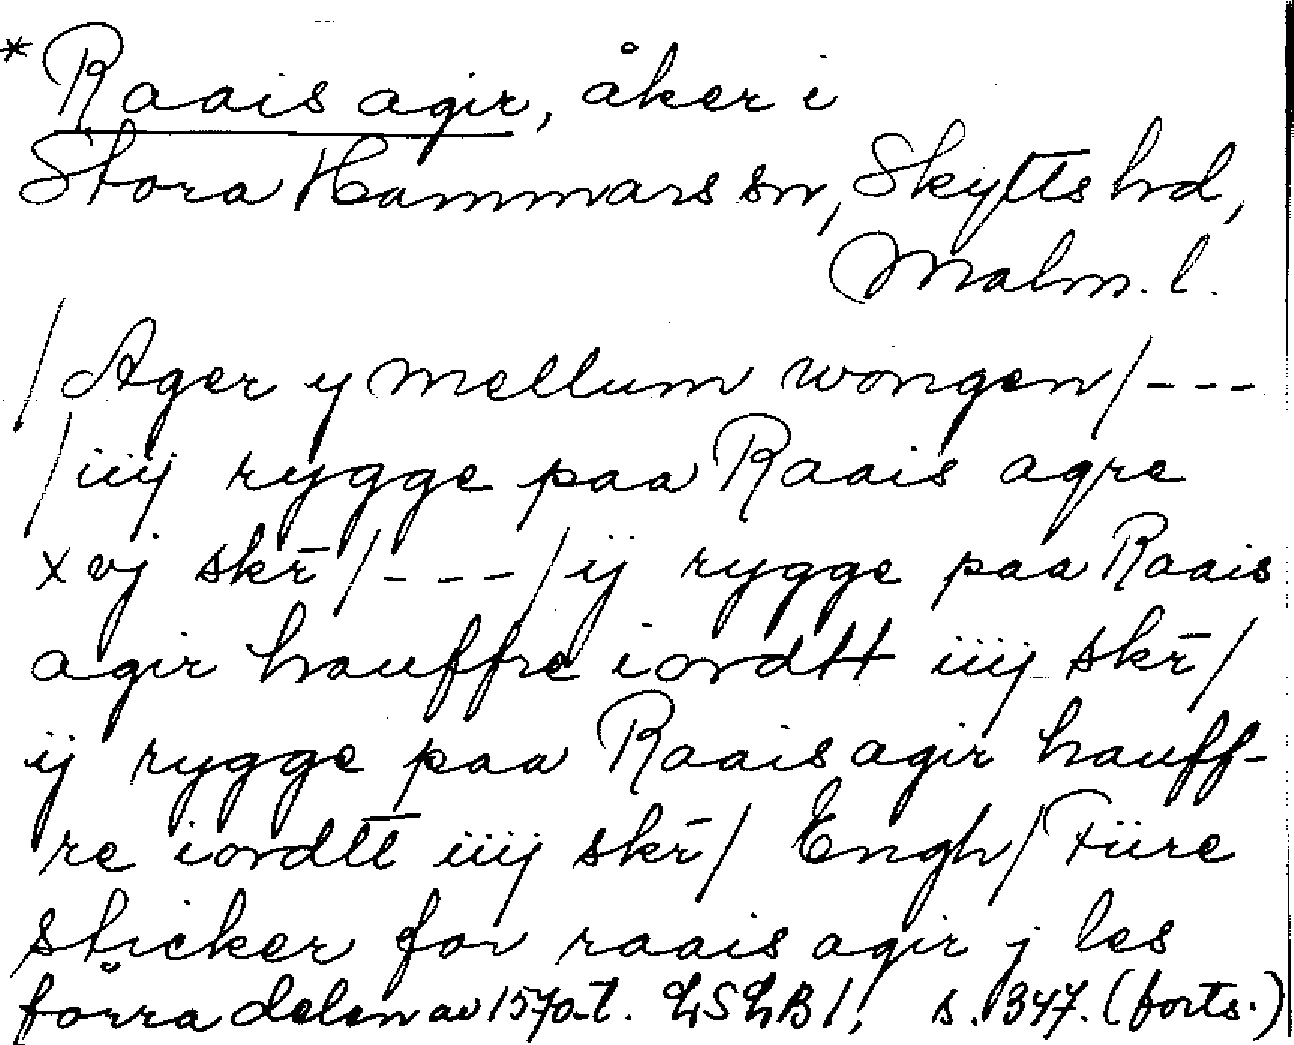 * Raais agir, åker i
Stora Hammars sn, Skytts hd,
Malm. l.
/Ager y mellum wongen/---
/iiij rygge paa Raais agre
xvj skr̄/---/ij rygge paa Raais
agir hauffre iordtt iiij skr̄/
ij rygge paa Raais agir hauff-
re iordtt iiij skr̄/ Engh/Füre
sticker for raais agir j les
förra delen av 1570-t. LSLB 1, s. 347. (forts.)